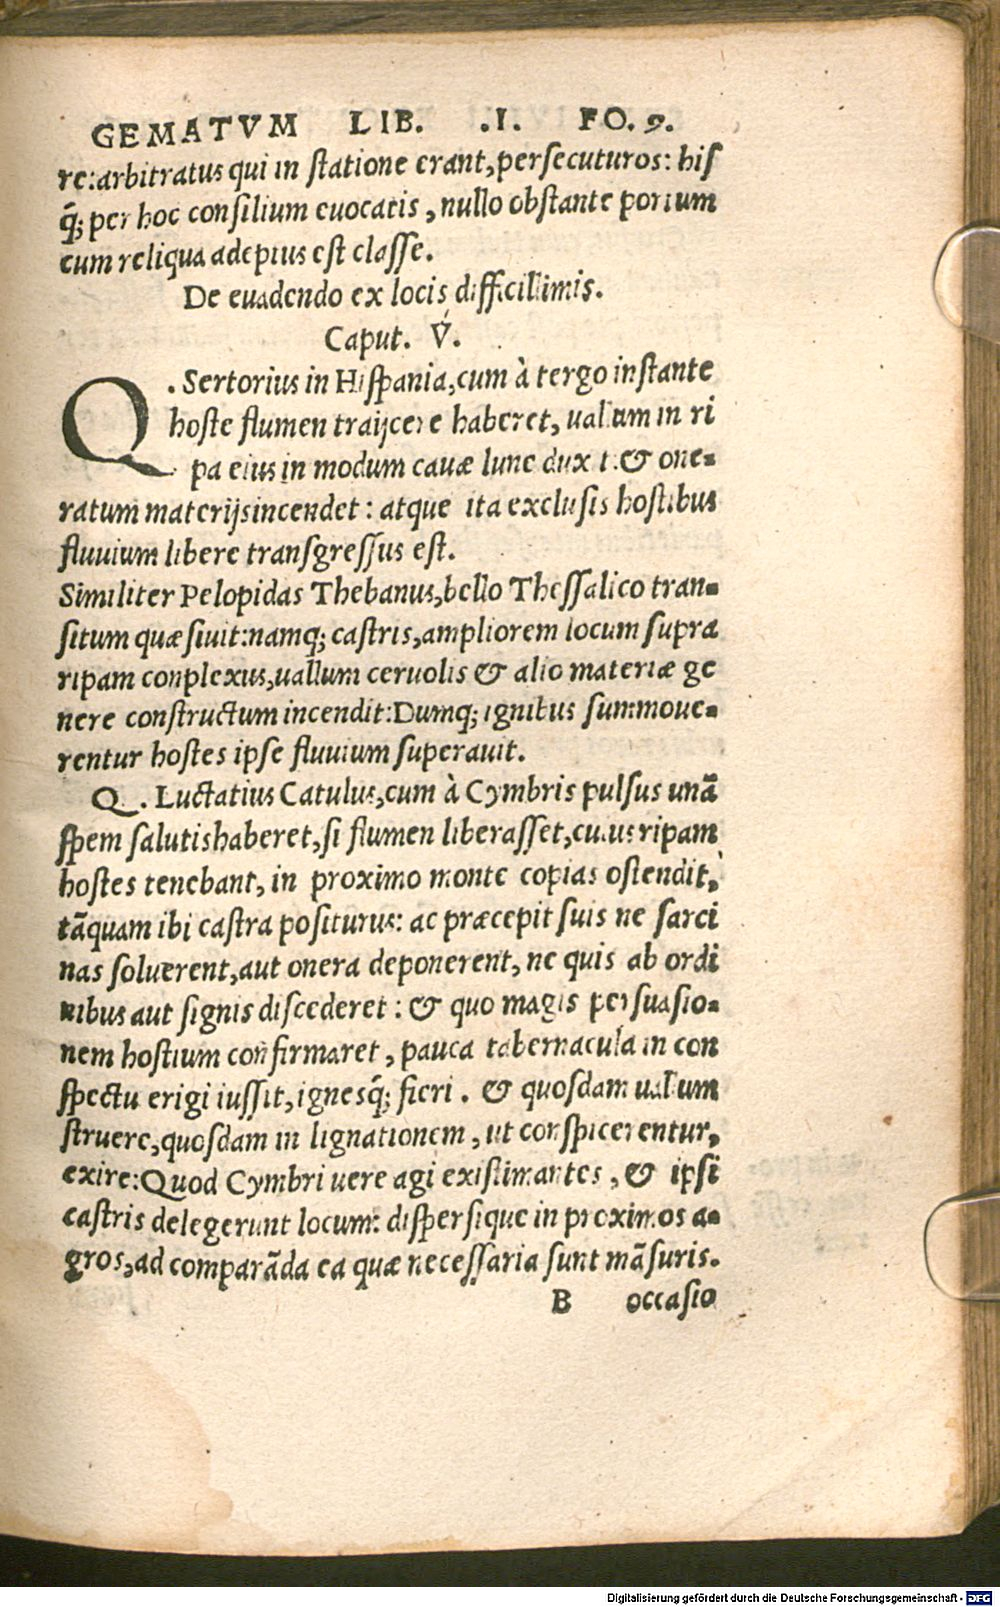 GEMATVM LIB. .I. FO. 9.
re: arbitratus qui in ſtatione erant, perſecuturos: hiſ
q̃; per hoc conſilium euocatis, nullo obſtante portum
cum reliqua adeptus eſt claſſe.
De euadendo ex locis difficillimis.
Caput. V.
Q. Sertorius in Hiſpania, cum à tergo inſtante
hoſte flumen traijcere haberet, uallum in ri
pa eius in modum cauæ lune duxit. & one-
ratum materijs incendet: atque ita excluſis hoſtibus
fluuium libere tranſgreſſus eſt.
Similiter Pelopidas Thebanus, bello Theſſalico tran-
ſitum quæſiuit: namq; caſtris, ampliorem locum ſupra
ripam conplexus, uallum ceruolis & alio materiæ ge
nere conſtructum incendit: Dumq; ignibus ſummoue-
rentur hoſtes ipſe fluuium ſuperauit.
Q. Luctatius Catulus, cum à Cymbris pulſus unã
ſpem ſalutis haberet, ſi flumen liberaſſet, cuius ripam
hoſtes tenebant, in proximo monte copias oſtendit,
tãquam ibi caſtra poſiturus: ac præcepit ſuis ne ſarci
nas ſoluerent, aut onera deponerent, ne quis ab ordi
nibus aut ſignis diſcederet: & quo magis perſuaſio-
nem hoſtium confirmaret, pauca tabernacula in con
ſpectu erigi iuſſit, ignesq̃; fieri. & quoſdam uallum
ſtruere, quoſdam in lignationem, ut conſpicerentur,
exire: Quod Cymbri uere agi exiſtimantes, & ipſi
caſtris delegerunt locum: diſperſique in proximos a-
gros, ad comparãda ea quæ neceſſaria ſunt mãſuris.
B occaſio
Digitalisierung gefördert durch die Deutsche Forschungsgemeinschaft - DFG